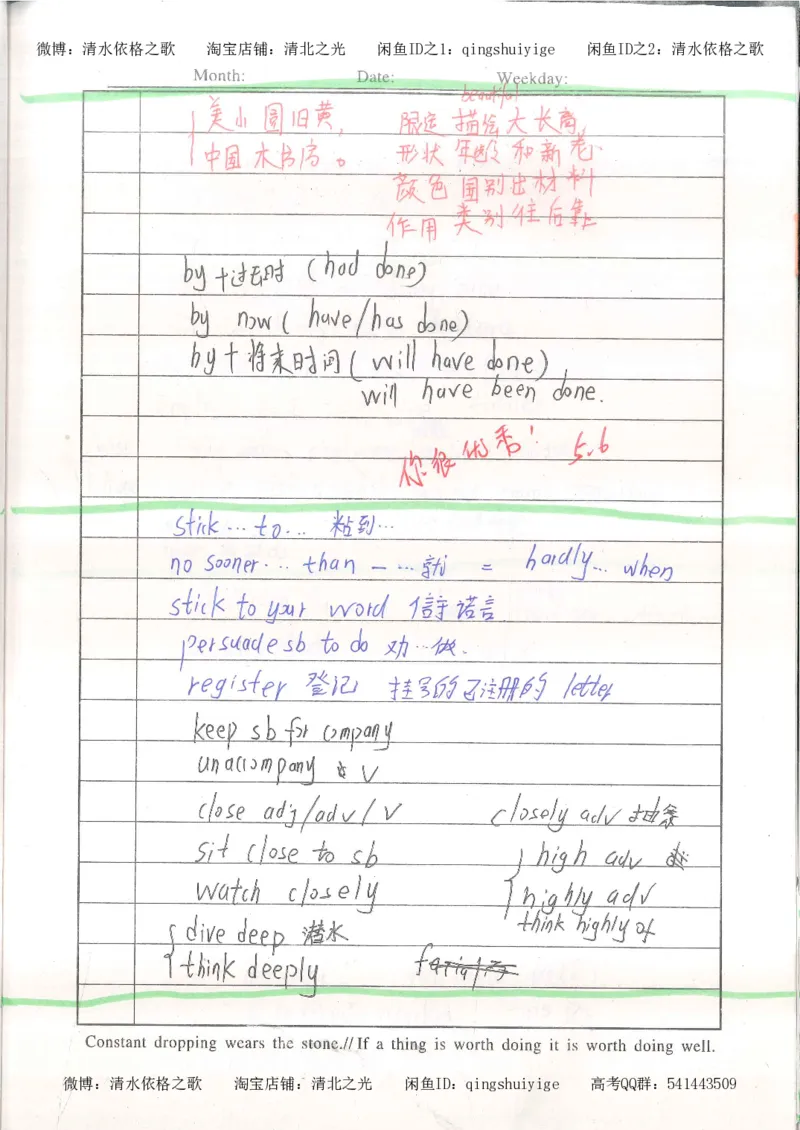 微博：清水依格之歌 淘宝店铺：清北之光 闲鱼ID之1：qingshuiyige 闲鱼ID之2：清水依格之歌
Month: Date: Weekday:
beautiful
美小圆旧黄， 限定描绘大长高，
中国木书房。 形状年龄和新老
颜色国别出材料
作用类别往后靠
by+过去时 (had done)
by now ( have/has done)
by+将来时间 ( will have done)
will have been done.
你很优秀! 5.6
stick … to … 粘到…
no sooner … than 一…就 = hardly… when
stick to your word 信守诺言
persuade sb to do 劝…做.
register 登记 挂号的已注册的 letter
keep sb for company
unaccompany V
close adj/adv/V closely adv 抽象
sit close to sb high adv
watch closely highly adv
think highly of
dive deep 潜水
think deeply
Constant dropping wears the stone.//If a thing is worth doing it is worth doing well.
微博：清水依格之歌 淘宝店铺：清北之光 闲鱼ID：qingshuiyige 高考QQ群：541443509